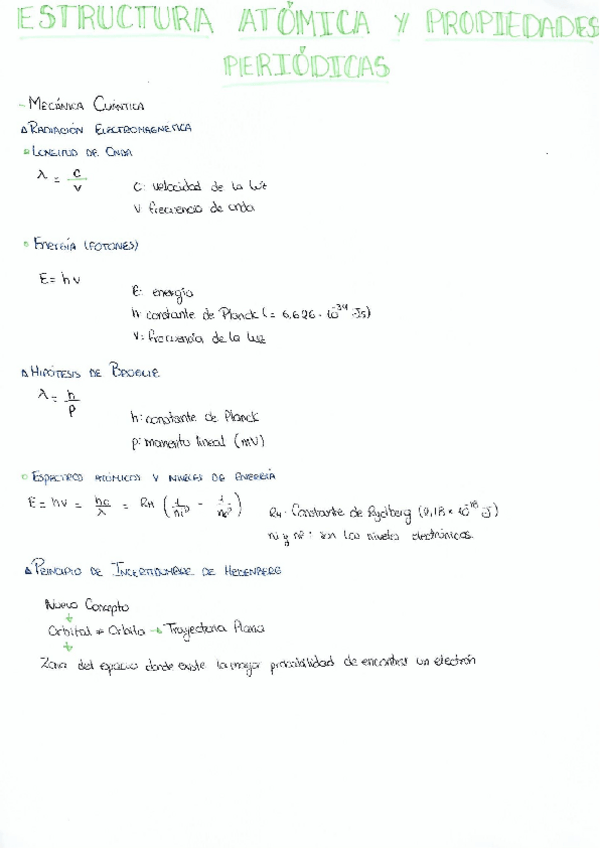 ESTRUCTURA ATÓMICA Y PROPIEDADES
PERIÓDICAS
- MECÁNICA CUÁNTICA
△ RADIACIÓN ELECTROMAGNETICA
▫ LONGITUD DE ONDA
λ = c/ν
C: velocidad de la luz
ν frecuencia de onda
▫ ENERGÍA (FOTONES)
E = hν
E: energía
h: constante de Planck (= 6,626 · 10⁻³⁴ Js)
ν: frecuencia de la luz
△ HIPÓTESIS DE BROGLIE
λ = h/p
h: constante de Planck
p: momento lineal (mv)
▫ ESPECTROS ATÓMICOS Y NIVELES DE ENERGÍA
E = hν = hc/λ = RH (1/ni² - 1/nf²)
RH: Constante de Rydberg (2,18 × 10⁻¹⁸ J)
ni y nf: son los niveles electrónicos.
△ PRINCIPIO DE INCERTIDUMBRE DE HEISENBERG
Nuevo Concepto
↓
Orbital ≠ Orbita → Trayectoria Plana
↓
Zona del espacio donde existe la mayor probabilidad de encontrar un electrón